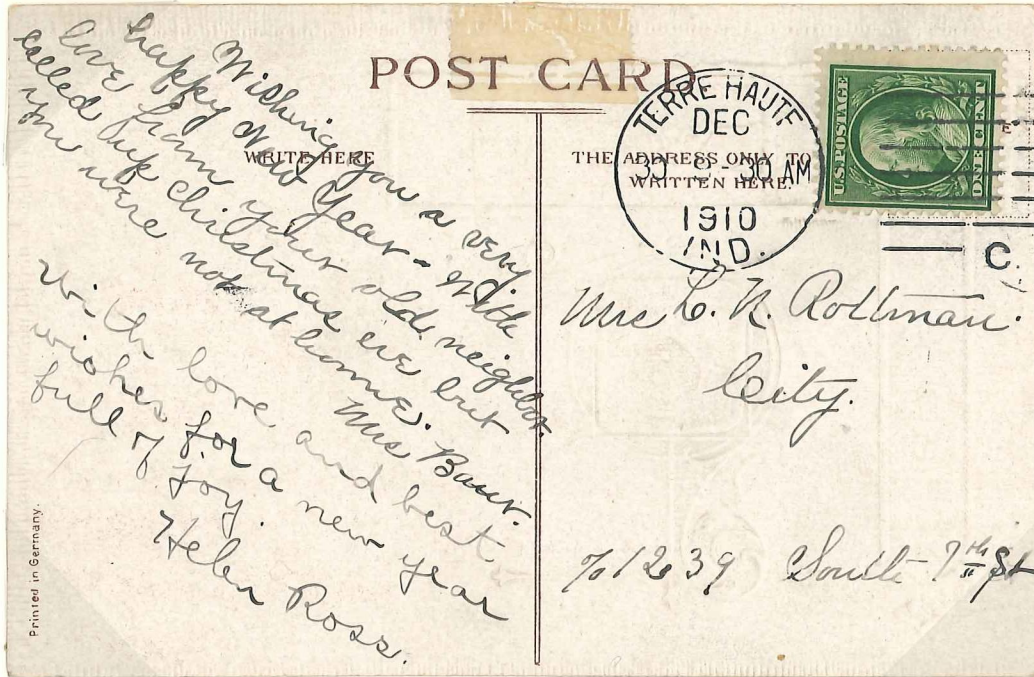 POST CARD
WRITE HERE
THE ADDRESS ONLY TO
WRITTEN HERE.
TERRE HAUTE
DEC
30 8-30 AM
1910
IND.
U.S. POSTAGE
ONE CENT
C.
Wishing you a very
happy New Year - With
love from your old neighbor.
called up christmas eve but
you were not at home.
Mrs Baur.
With love and best
wishes for a new year
full of Joy.
Helen Ross.
Mrs L. N. Rottman.
City.
1239 South 7th St
Printed in Germany.